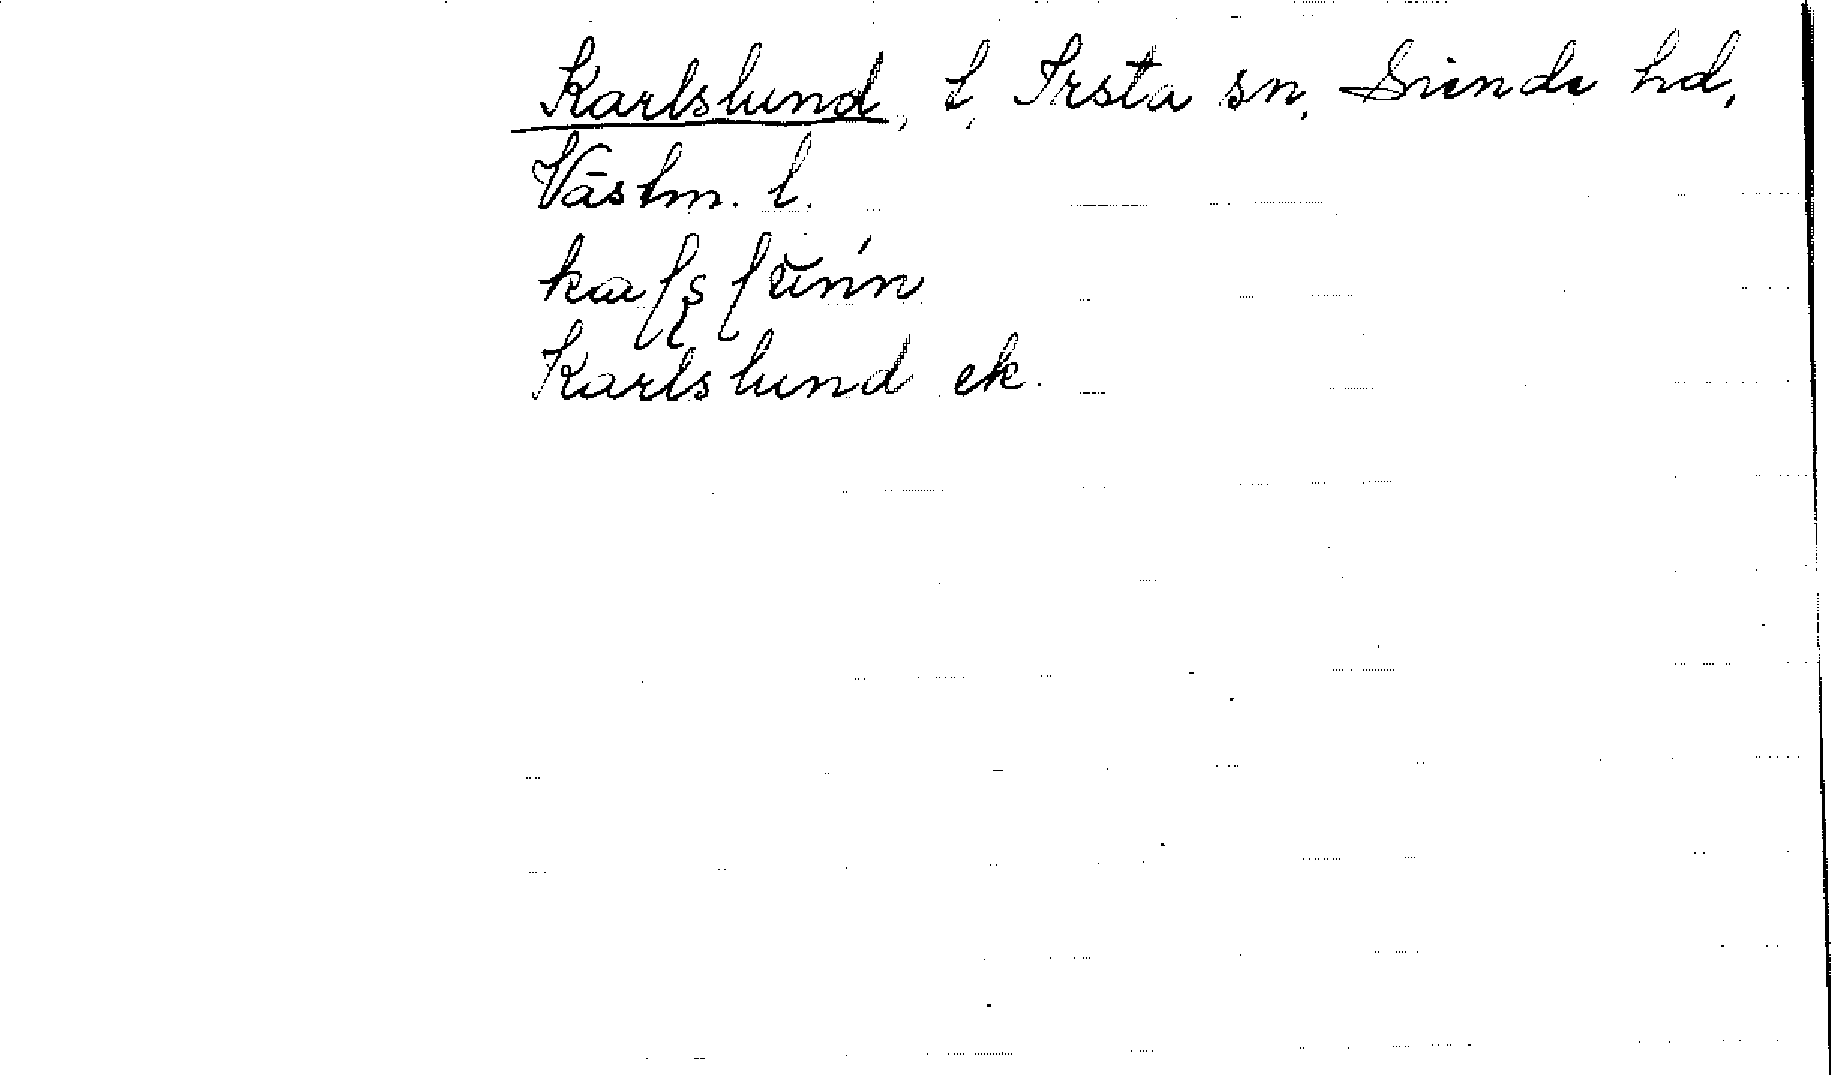 Karlslund, t, Irsta sn, Siende hd,
Västm. l.
Karlslund ek.